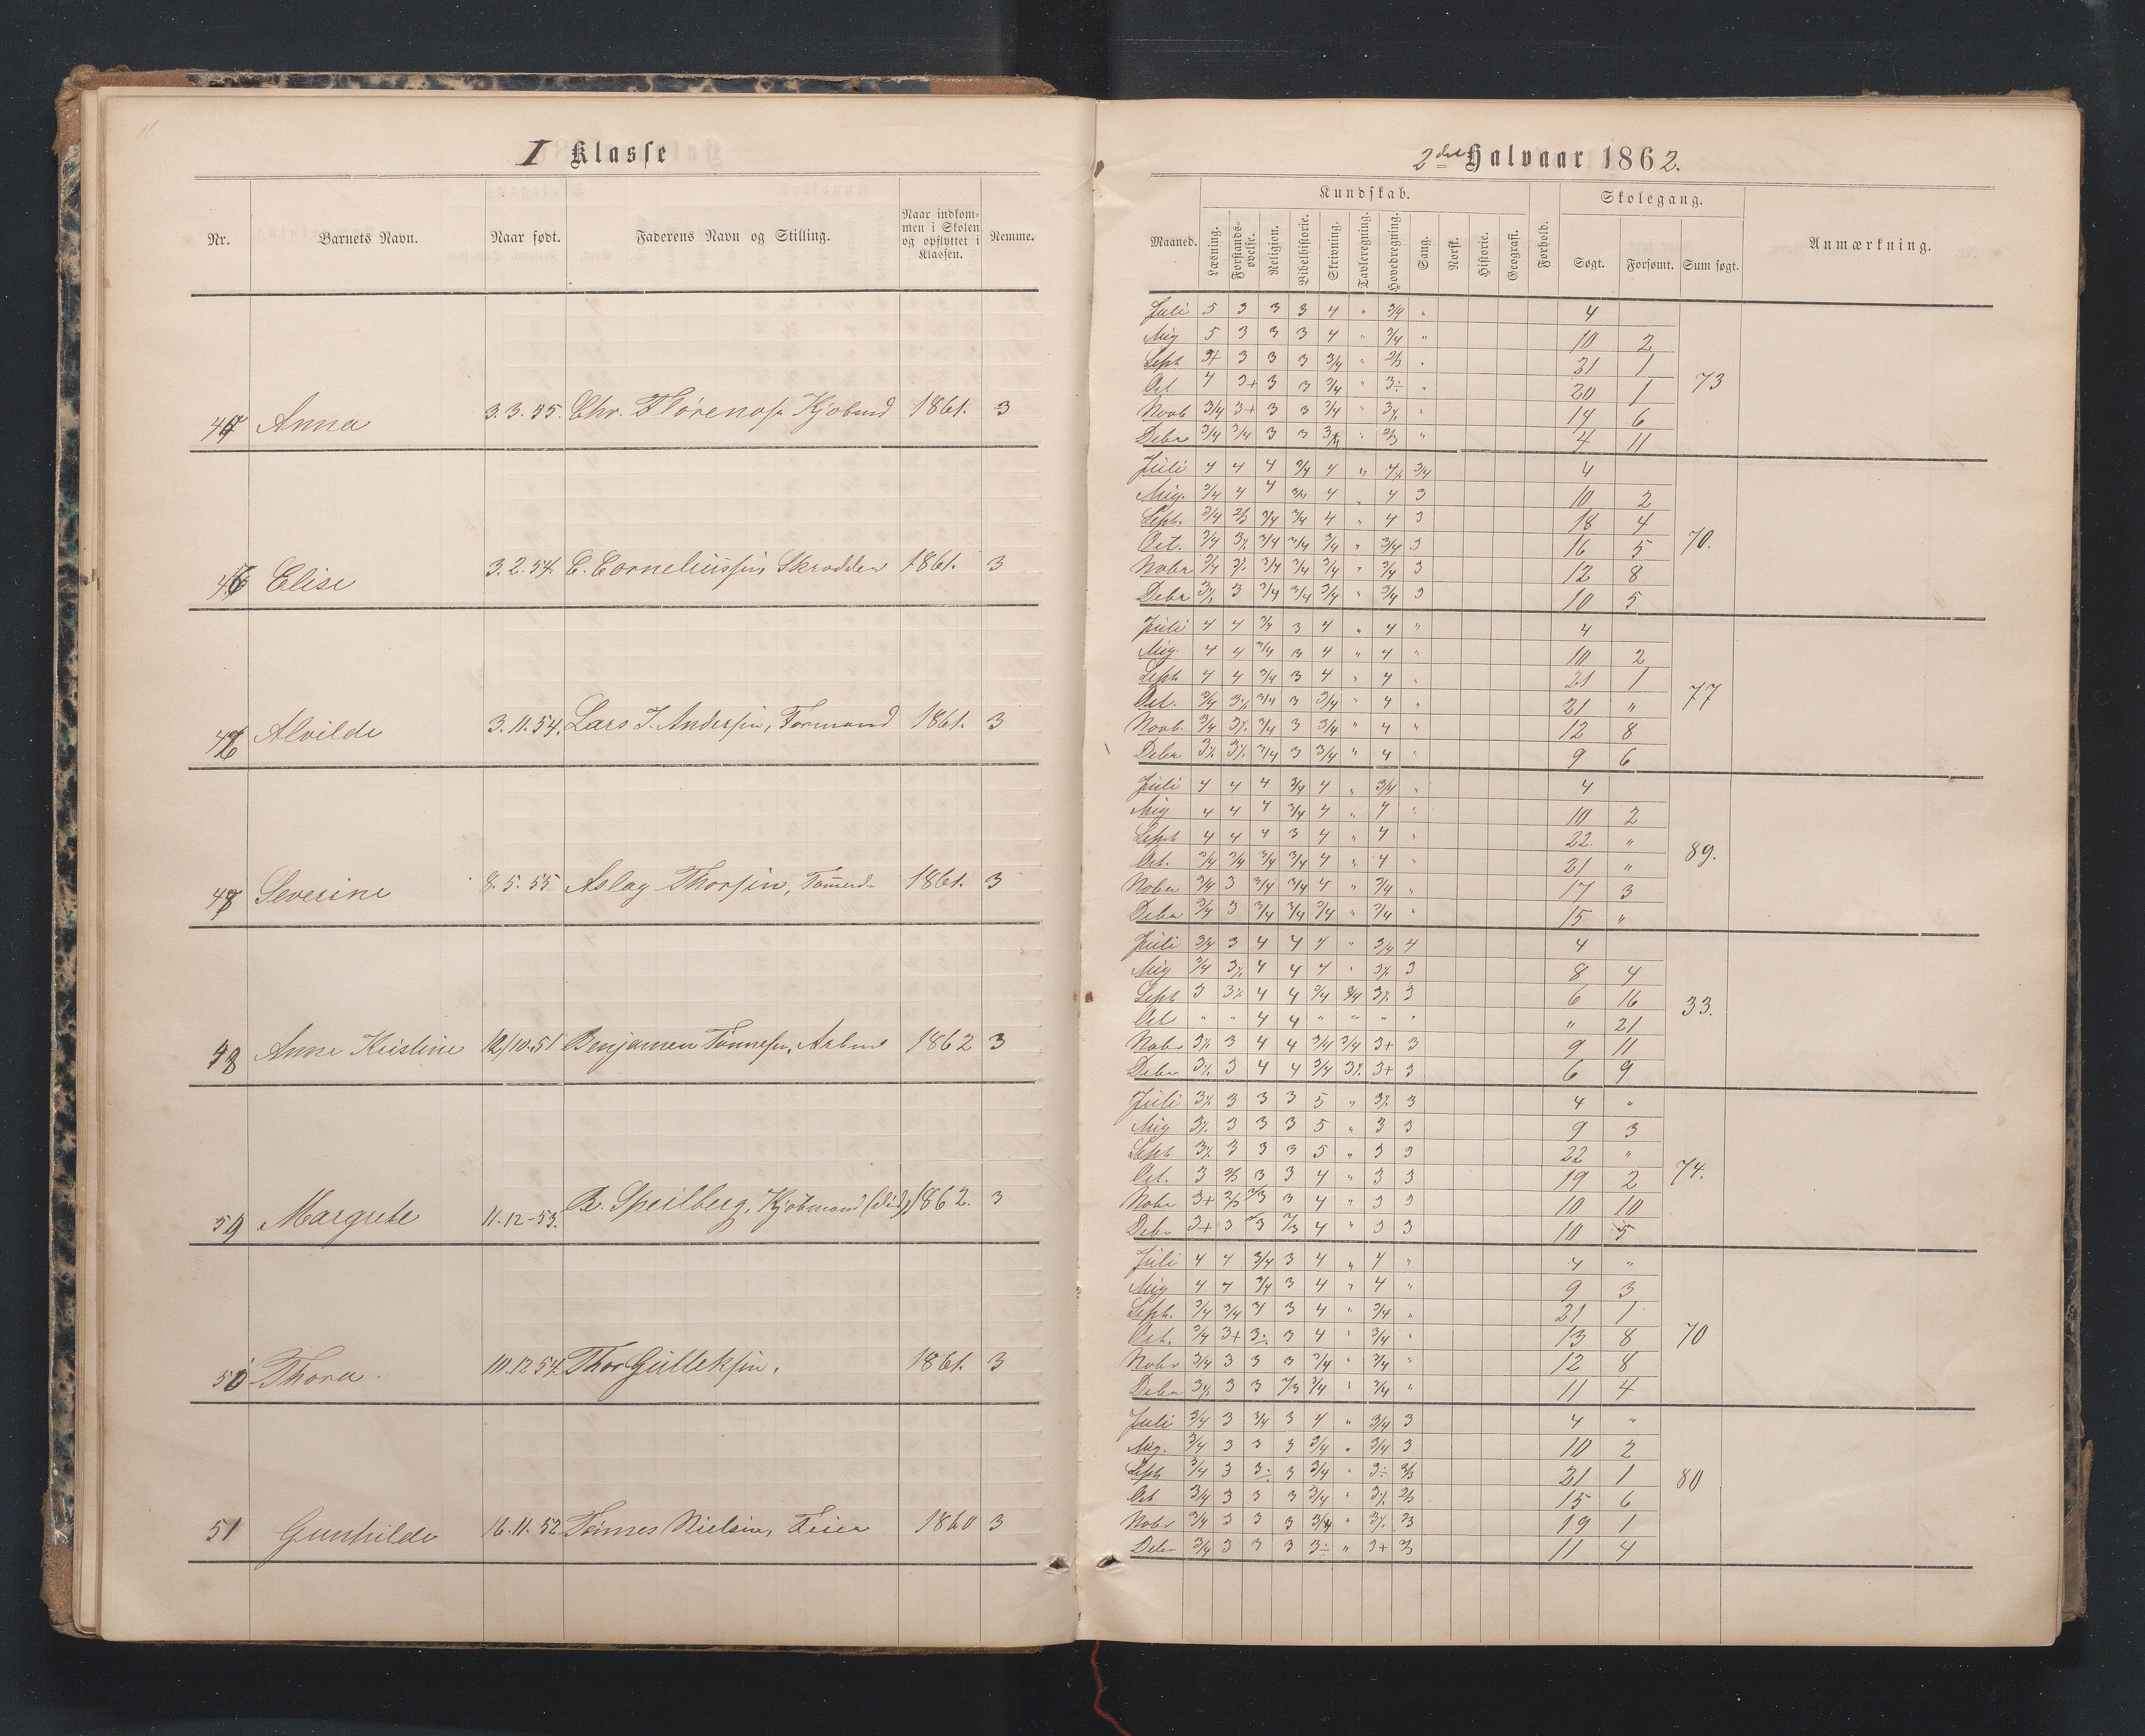 I Klasse
Nr. Barnets Navn. Naar født. Faderens Navn og Stilling. Naar indkommen i Skolen og opflyttet i Klassen. Nemme.
Anna 3.3.55. Chr. 1861. 3
Elise 3.2.54. C. Corneliussen, Skrædder 1861. 3
Alvilde 3.11.54. Lars J. Andersen, Formand 1861. 3
Severine 8.5.55 Aslag Thorsen, 1861. 3
Anne Kristine 12/10.51 Benjamen Tønnesen, 1862 3
Margrete 11.12-53. Speilberg, Kjøbmand (død) 1862. 3
50 Thora. 10.12.54. Thor Gulleksen. 1861. 3
51 Gunhilde 16.11.52 Tønnes Nielsen, Feier 1860 3
2det Halvaar 1862.
Kundskab. Skolegang.
Maaned. Læsning. Forstandsøvelse. Religion. Bibelhistorie. Skrivning. Tavleregning. Hovedregning. Sang. Norsk. Historie. Geografi. Forhold. Søgt. Forsømt. Sum søgt. Anmærkning.
Juli 5 3 3 3 4 " 3/4 " 4
Aug 5 3 3 3 4 " 3/4 " 10 2
Sept 3+ 3 3 3 3/4 " 2/3 " 21 1
Oct 4 3+ 3 3 3/4 " 3÷ " 20 1 73
Novb 3/4 3+ 3 3 3/4 " " 14 6
Debr 3/4 3/4 3 3 " 2/3 " 4 11
Juli 4 4 4 3/4 4 " 3/4 4
Aug. 3/4 4 4 3/4 4 " 4 3 10 2
Sept. 3/4 2/3 3/4 3/4 4 " 4 3 18 4
Oct. 3/4 3/4 3/4 3/4 " 3/4 3 16 5 70.
Nobr 3/4 3/4 3/4 3/4 " 3/4 3 12 8
Debr 3 3/4 3/4 3/4 " 3/4 3 10 5
Juli 4 4 3/4 3 4 " 4 " 4
Aug. 4 4 3/4 3 4 " 4 " 10 2
Sept 4 4 3/4 3 4 " 4 " 21 1
Oct. 3/4 3/4 3 3/4 " 4 " 21 " 77
Novb. 3/4 3/4 3 3/4 " 4 " 12 8
Debr 3/4 3 3/4 " 4 " 9 6
Juli 4 4 4 3/4 4 " 3/4 " 4
Aug 4 4 4 3/4 4 " 4 " 10 2
Sept 4 4 4 3 4 " 4 " 22. "
Oct. 3/4 3/4 3/4 3/4 4 " 4 " 21 " 89.
Nobr 3/4 3 3/4 3/4 4 " 3/4 " 17 3
Debr 3/4 3 3/4 3/4 3/4 " 3/4 " 15 "
Juli 3/4 3 4 4 4 " 3/4 4 4
Aug 3/4 4 4 4 " 3 8 4
Sept 3 4 4 3/4 3/4 3 6 16
Oct " " 4 4 " " " " " 21 33.
Nobr 3 4 4 3/4 3/4 3+ 3 9 11
Debr 3 4 4 3/4 3+ 3 6 9
Juli 3 3 3 5 " 3 4 "
Aug 3 3 3 5 " 3 3 9 3
Sept 3 3 3 5 " 3 3 22 "
Oct. 3 2/3 3 3 4 " 3 3 19 2 74.
Nobr 3+ 2/3 2/3 3 4 " 3 3 10 10
Debr 3+ 3 2/3 2/3 4 " 3 3 10 5
Juli 4 4 3/4 3 4 " 4 " 4 "
Aug 4 4 3/4 3 4 " 4 " 9 3
Sept. 3/4 3/4 3 4 " 3/4 " 21 1
Oct. 3/4 3+ 3÷ 3 4 " 3/4 " 13 8 70
Nobr 3/4 3 3 3 3/4 " 3/4 " 12 8
Debr 3 3 2/3 3/4 " 3/4 " 11 4
Juli 3/4 3 3/4 3 4 " 3/4 3 4 "
Aug. 3/4 3 3 3 3/4 " 3/4 3 10 2
Sept 3/4 3 3÷ 3 3/4 " 3÷ 2/3 21 1
Oct 3/4 3 3 3 3/4 " 2/3 15 6 80
Nobr 3/4 3 3 3 3/4 " 2/3 19 1
Debr 3/4 3 3 3 3÷ " 3+ 2/3 11 4